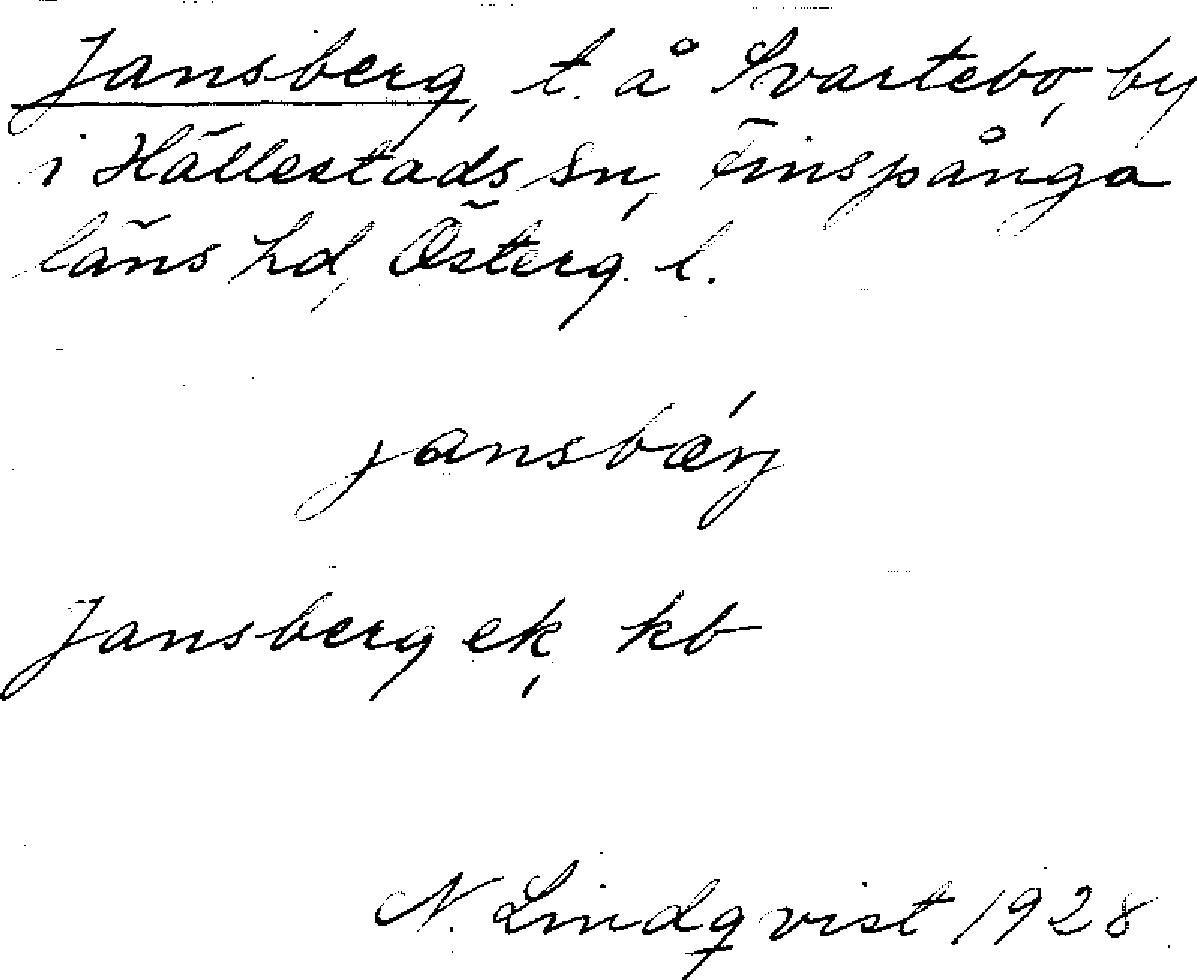 Jansberg, t. å Svartebo, by
i Hällestads sn, Finspånga
läns hd, Österg. l.
jansbærj
Jansberg ek, kb
N. Lindqvist 1928